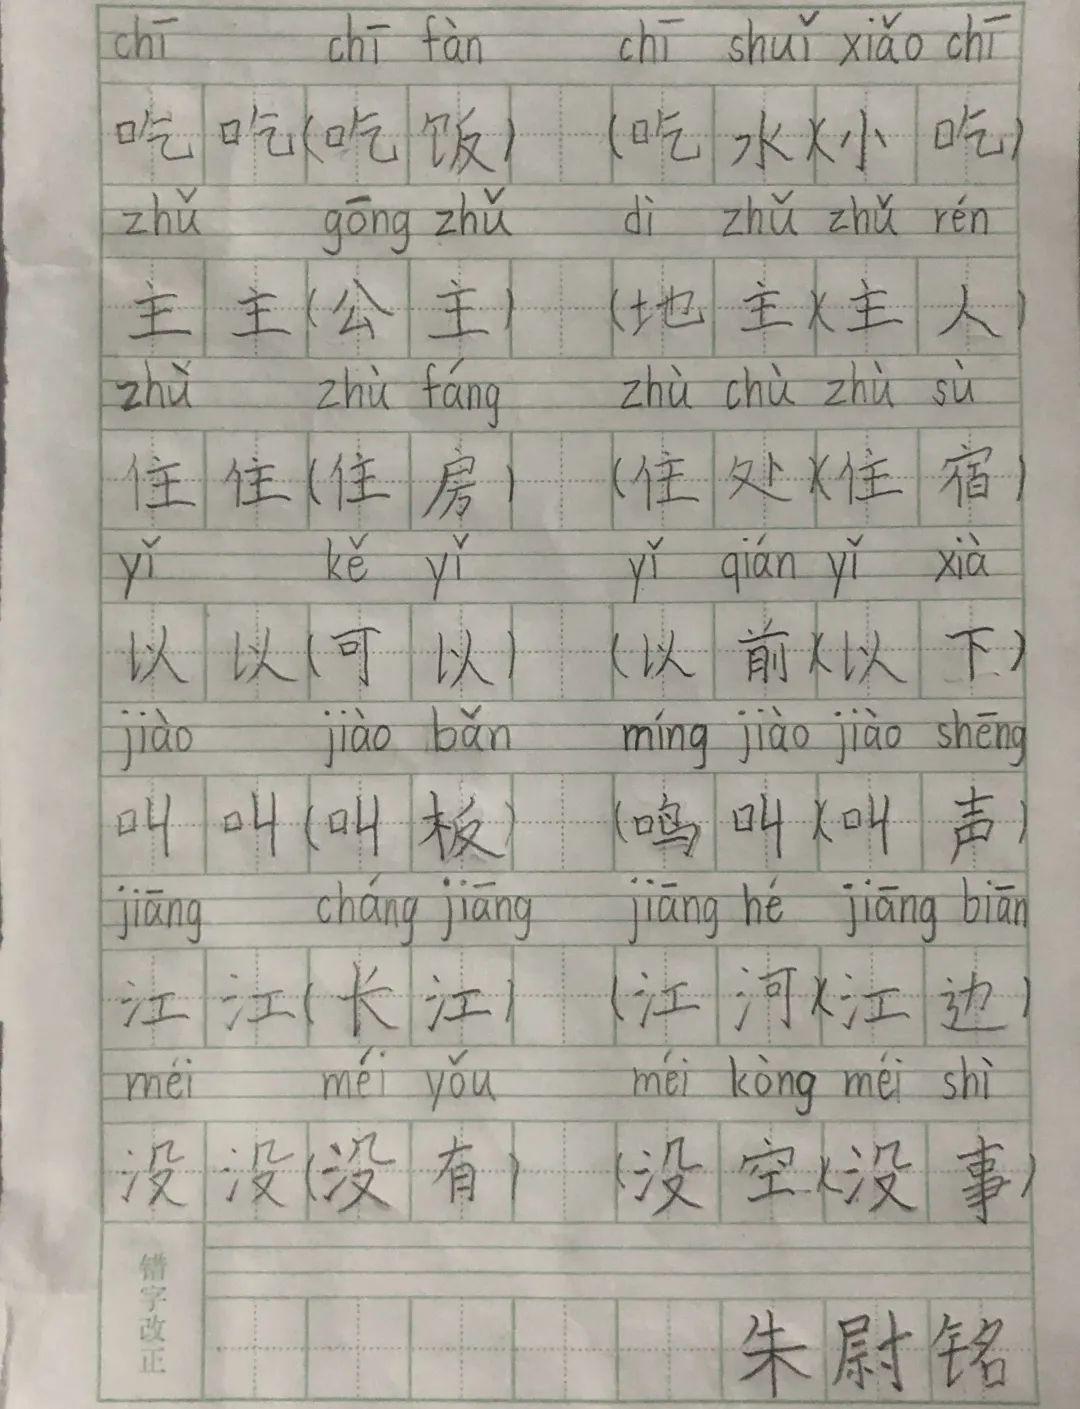 chī chī fàn chī shuǐ xiǎo chī
吃 吃 (吃 饭) (吃 水) (小 吃)
zhǔ gōng zhǔ dì zhǔ zhǔ rén
主 主 (公 主) (地 主) (主 人)
zhǔ zhù fáng zhù chù zhù sù
住 住 (住 房) (住 处) (住 宿)
yǐ kě yǐ yǐ qián yǐ xià
以 以 (可 以) (以 前) (以 下)
jiào jiào bǎn míng jiào jiào shēng
叫 叫 (叫 板) (鸣 叫) (叫 声)
jiāng cháng jiāng jiāng hé jiāng biān
江 江 (长 江) (江 河) (江 边)
méi méi yǒu méi kòng méi shì
没 没 (没 有) (没 空) (没 事)
错字改正
朱 尉 铭